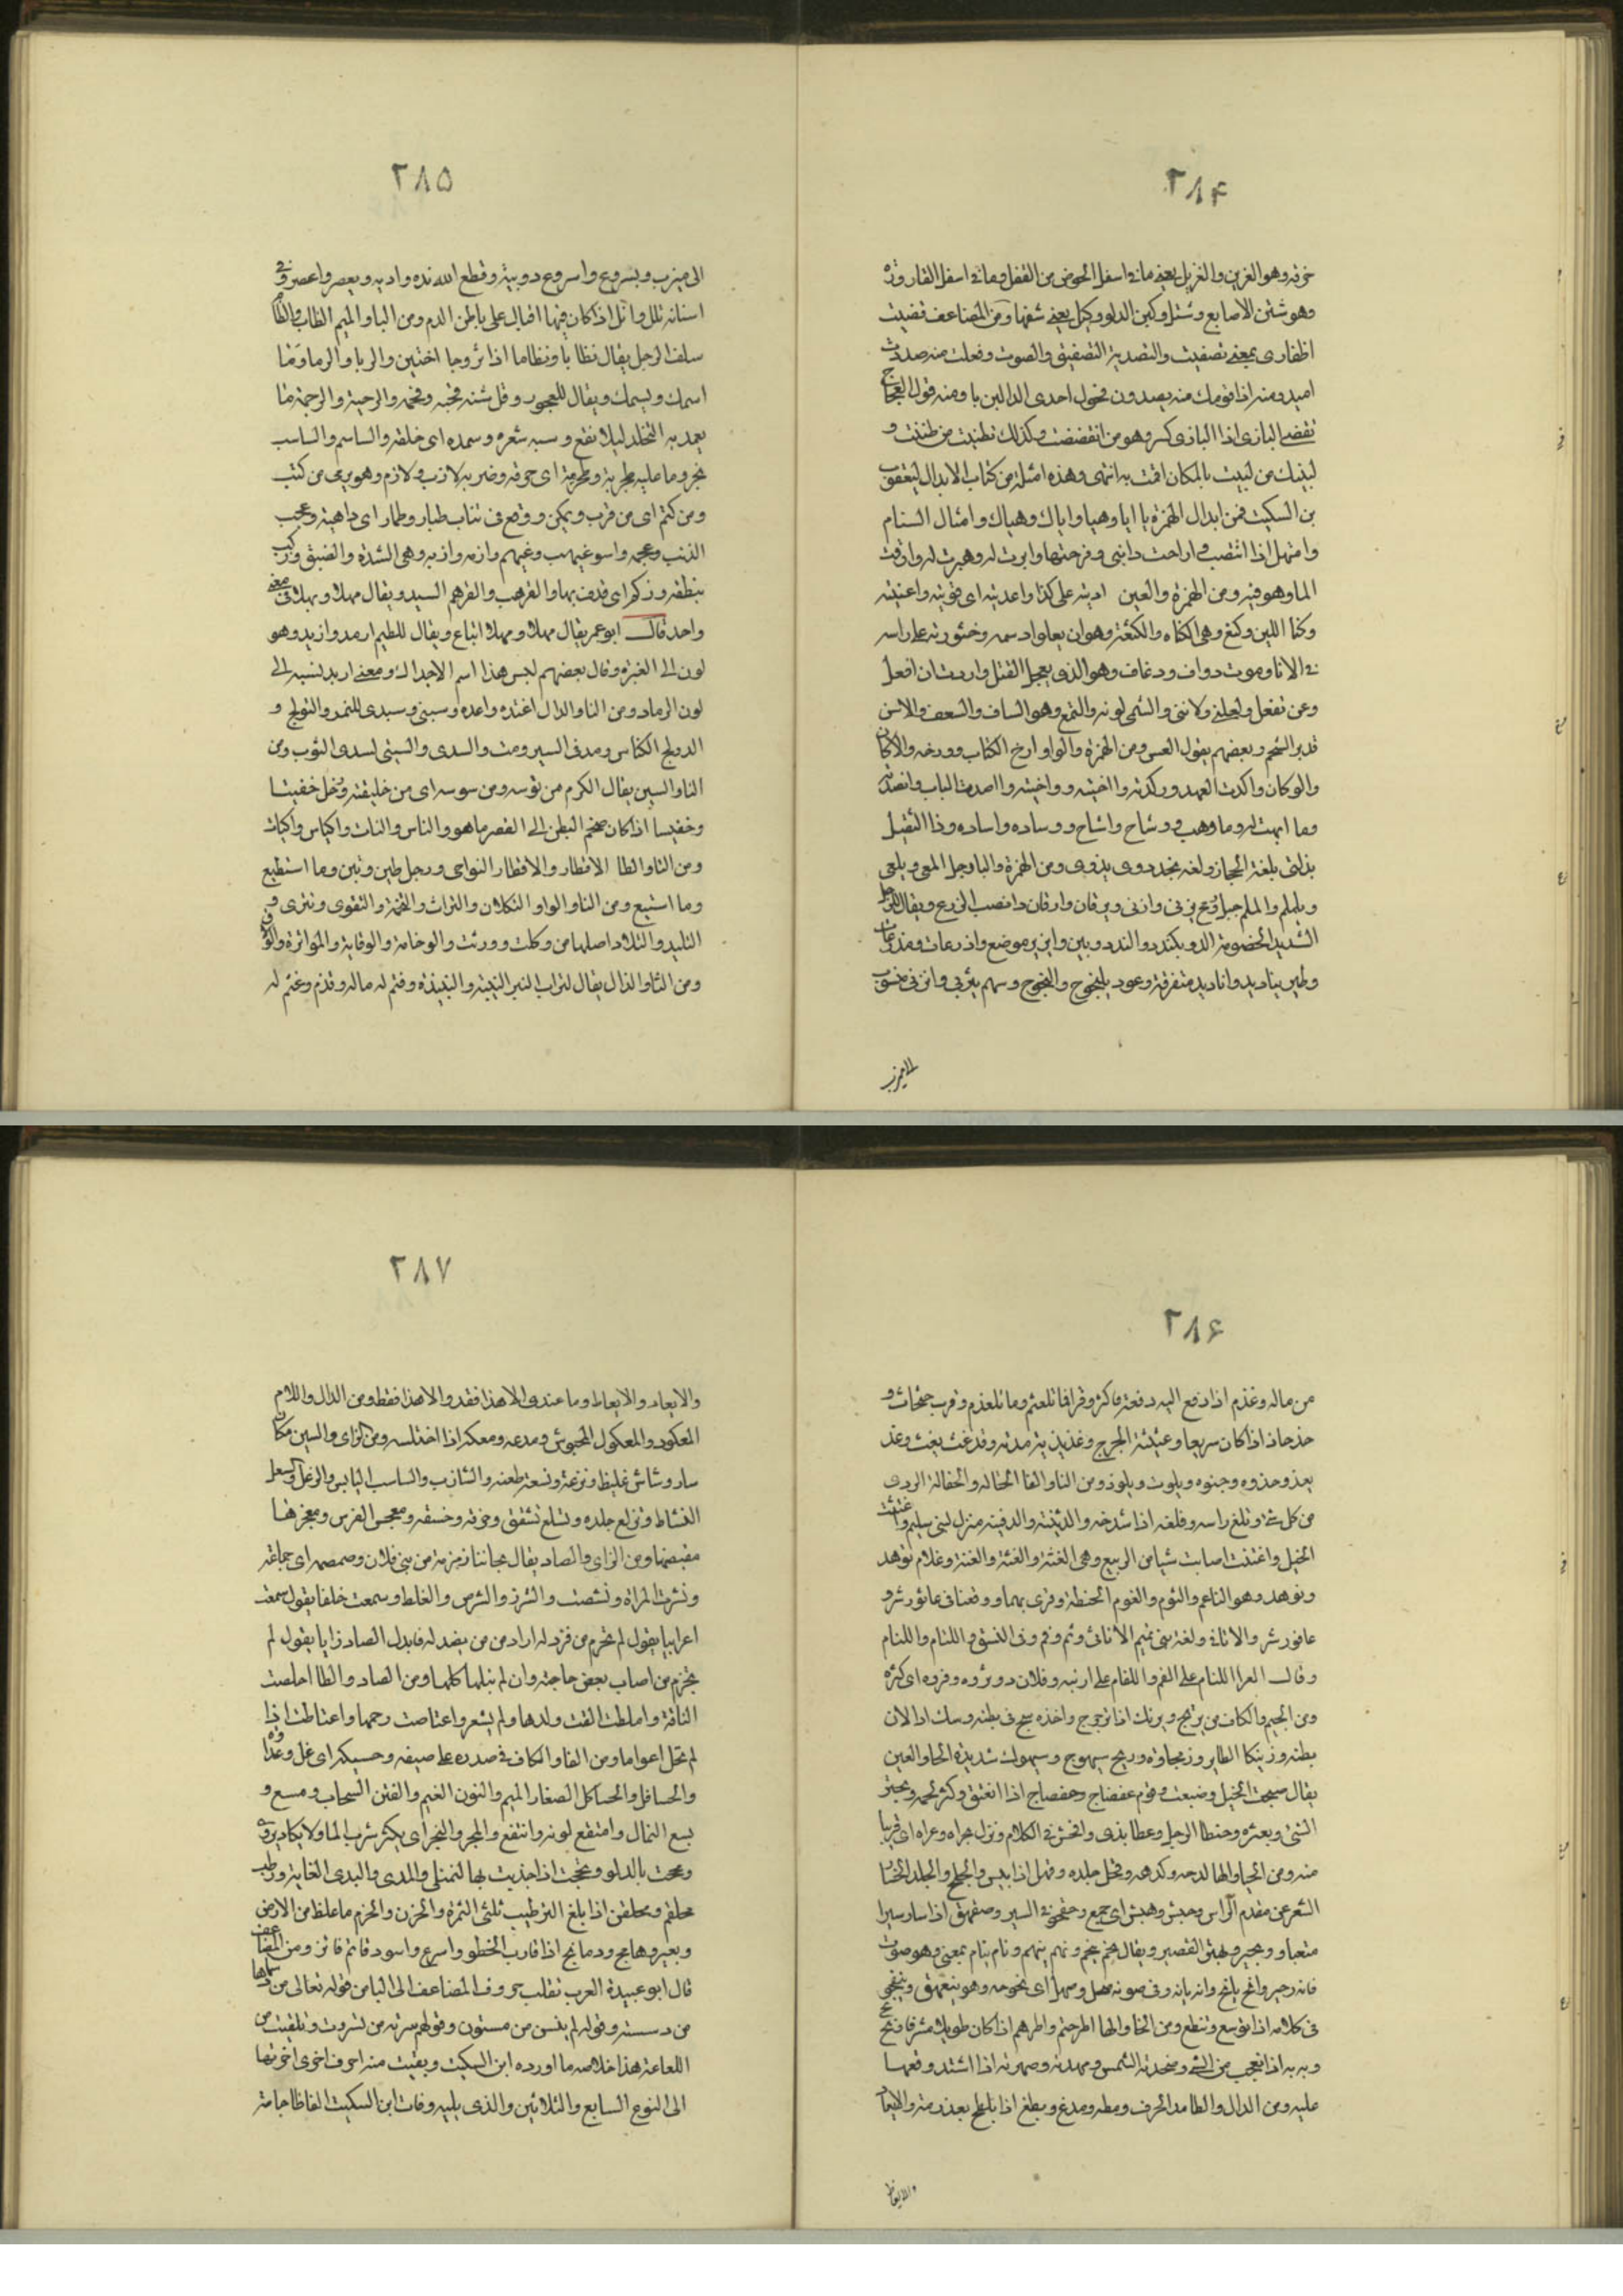 ٢٨۴
خرقه وهو الغرين والغريل يعني ما في اسفل الحوض من الثفل وما في اسفل القارورة
وهو شثن الاصابع وشثل وكبن الدلو وكبل يعني شفها ومن المضاعف قصيت
اظفارى بمعنى قصصت والتصدية التصفيق والصوت وفعلت منه صددت
اصد ومنه اذا قومك منه يصدون فحول احدى الدالين يا ومنه قول العجاج
تقضي البازى اذا البازى كسر وهو من انقضضت وكذلك تظنيت من ظننت و
لبيك من لببت بالمكان اقمت به انتهى وهذه امثلة من كتاب الابدال ليعقوب
بن السكيت فمن ابدال الهمزة ها ايا وهيا واياك وهياك وامثال السنام
وامتهل اذا انتصب وارحت دابتى وهرحتها وابرت له وهبرت له وارقت
الما وهرقته ومن الهمزة والعين اديته على كذا واعديته اى قويته واعنته
وكثا اللبن وكثع وهى الكثاه والكثعة وهو ان يعلوا دسمه وخثورته على راسه
في الانا وموت دواف ودعاف وهو الذى يعجل القتل واردت ان افعل
وعن تفعل ولعلني ولانني والتمى لونه والتمع وهو الساف والسعف والاسن
قدير الشحم وبعضهم يقول العسن ومن الهمزة والواو ارخ الكتاب وورخه والاكاف
والوكاف واكدت العهد ووكدته واخيته وواخيته واصدت الباب واوصدته
وما ابهت له وما وهبت ووشاح واشاح ووساده واساده وذا البقل
بذلتى بلغة الحجاز ولغة نجد ذوى يذوى ومن الهمزة واليا رجل المعى ويلمعى
ويلملم والملم جبل ورمح يزنى وازنى ويرقان وارقان دا يصيب الزرع ويقال للرجل
الشديد الخصومة الد ويلندد والندد ويبين وابين موضع واذرعات ويذرعات
وطير يناديد واناديد متفرقة وعود يلنجوج والنجوج وسهم يثربى واثربى منسوب
الى يثرب
٢٨۵
الى يثرب ويسروع واسروع دويبة وقطع الله يده واديه ويعصر واعصر وفي
اسنانه يلل والل اذا كان فيها اقبال على باطن الفم ومن البا والميم الظاب والظام
سلف الرجل يقال تظابا وتظاما اذا تزوجا اختين والربا والرما وما
اسمك وبسمك ويقال للعجوز وكل شنه قحبه وقحمه والرحبة والرجمة ما
يعمد به النخلة ليلا تقع وسبد شعره وسمده اى حلقه والساسم والساسب
شجر وما عليه طحربة وطحرمة اى خرقه وضربه لازب ولازم وهو يرمى من كثب
ومن كثم اى من قرب ويمكن ووقع فى بنات طبار وطمار اى داهية وعجب
الذنب وعجمه واسود غيهب وغيهم وازمه وازبه وهى الشدة والضيق وزكب
بنطفة وزكم اى قذف بها والقرهب والقرهم السيد ويقال مهلا وبهلا فى معنى
واحد قال ابو عمر يقال مهلا وبهلا اتباع ويقال للظليم ارمد واربد وهو
لون الى الغبرة وقال بعضهم ليس هذا اسم الابدال ومعنى اربد نسبه الى
لون الرماد ومن التا والدال اعتده واعده وسبنتى وسبندى للنمر والتولج و
الدولج الكناس ومد فى السير ومت والسدى والستى لسدى الثوب ومن
التا والسين يقال الكرم من توسه ومن سوسه اى من خليقته ورجل خفيتا
وخفيسا اذا كان ضخم البطن الى القصر ما هو والناس والنات واكياس واكيات
ومن التا والطا الاقتار والاقطار النواحى ورجل طبن وتبن وما استطيع
وما استيع ومن التا والواو التكلان والتراث والتخمة والتقوى وتترى و
التليد والتلاد اصلها من وكلت وورثت والوخامة والوقاية والمواترة والولادة
ومن الثا والذال يقال لتراب البئر النبيثه والنبيذه وقثم له ماله وقذم وغثم له
٢٨۶
من ماله وغذم اذا دفع اليه دفعة فاكثر وقرا فما تلعثم وما تلعذم وقرب حثحاث و
حذحاذ اذا كان سريعا وغثيثة الجرح وغذيذته مدته وقد غث يغث وغذ
يغذ وجذوه وجثوه ويلوث ويلوذ ومن الثا والفا الحثاله والحفالة الردى
من كل شي وثلغ راسه وفلغه اذا شدخه والدثينة والدفينة منزل لبنى سليم واغتثت
الخيل واغتفت اصابت شيا من الربيع وهى الغثة والغفة وغلام ثوهد
وفوهد وهو الناعم والثوم والفوم الحنطة وقرى بهما ووقعنا فى عاثور شر و
عافور شر والاثافى ولغة بنى تميم الاثاثى وثم وفم فى النسق واللثام واللفام
وقال الفرا اللثام على الفم واللفام على ارنبه وفلان ذو ثروه وفروه اى كثره
ومن الجيم والكاف مر يرتج ويرتك اذا ترجرج واخذه سج فى بطنه وسك اذا لان
بطنه وزمجا الطاير وزمكاه وريح سيهوج وسيهوك شديدة الحا والعين
يقال ضبحت الخيل وضبعت وقوم عفضاج وحفضاج اذا انفتق وكثر لحمه وبحثر
الشى وبعثره وحنظا الرجل وعنظا بذى وافحش فى الكلام ونزل بحراه وعراه اى قريبا
منه ومن الحا والها مدحه ومدهه وقحل جلده وقهل اذا يبس والجلح والجله انحسار
الشعر عن مقدم الراس وحبش وهبش اى جمع وحقحق فى السير وهقهق اذا سار سيرا
متعبا وبحتر وبهتر القصير ويقال نحم ينحم ونهم ينهم ونام ينام بمعنى وهو صوت
كانه زحير وانح يانح وانه يانه وفى صوته صحل وصهل اى بحوحه وهو يتفيهق ويتفيحق
فى كلامه اذا توسع وتنطع ومن الخا والها اطرخم واطرهم اذا كان طويلا مشرفا وبخ بخ
وبه به اذا تعجب من الشي وصخدته الشمس وصهدته وصهرته اذا اشتد وقعها
عليه ومن الدال والطا مد الحرف ومطه وبدغ وبطغ اذا تلطخ بعذرته والابعاد
والابعاط
٢٨٧
والابعاد والابعاط وما عندى الا هذا فقد والا هذا فقط ومن الدال واللام
المعكود والمعكول المحبوس ومعده ومعله اذا اختلسه ومن الزاى والسين مكان
شاز وشاس غليظ ونزغه ونسغه طعنه والشازب والشاسب اليابس والزعل والسعل
النشاط وتزلع جلده وتسلع تشقق وخزقه وخسقه ومعجس القوس ومعجزها
مقبضها ومن الزاى والصاد يقال جاتنا زمزمة من بنى فلان وصمصمة اى جماعة
ونشزت المراة ونشصت والشرز والشرص والغلط وسمعت خلفا يقول سمعت
اعرابيا يقول لم يحرم من فزد له اراد من من يفصد له فابدل الصاد زايا يقول لم
يحرم من اصاب بعض حاجته وان لم ينلها كلها ومن الصاد والطا املصت
الناقة واملطت القت ولدها ولم يشعر واعتاصت رحمها واعتاطت اذا
لم تحمل اعواما ومن الفا والكاف فى صدره على حسيفه وحسيكه اى غل وعداوه
والحسافل والحساكل الصغار الميم والنون الغيم والغين السحاب ومسع و
نسع الشمال وامتقع لونه وانتقع والمجر والنجر اى يكثر شرب الما ولا يكاد يروى
ومخجت بالدلو ونخجت اذا جذبت بها لتمتلى والمدى والندى الغاية ورطب
محلقم ومحلقن اذا بلغ الترطيب ثلثى الثمرة والحزن والحزم ما غلظ من الارض
وبعير دهامج ودهانج اذا قارب الخطو واسرع واسود قاتم قاتن ومن المضاعف
قال ابو عبيدة العرب تقلب حروف المضاعف الى اليا من قوله تعالى من دساها
من دسست وقوله لم يتسن من مسنون وقولهم سرية من تسررت وتلعيت من
اللعاعة هذا خلاصه ما اورده ابن السكيت وبقيت منه احرف اخرى اخرتها
الى النوع السابع والثلاثين والذى يليه وفات ابن السكيت الفاظا جامة